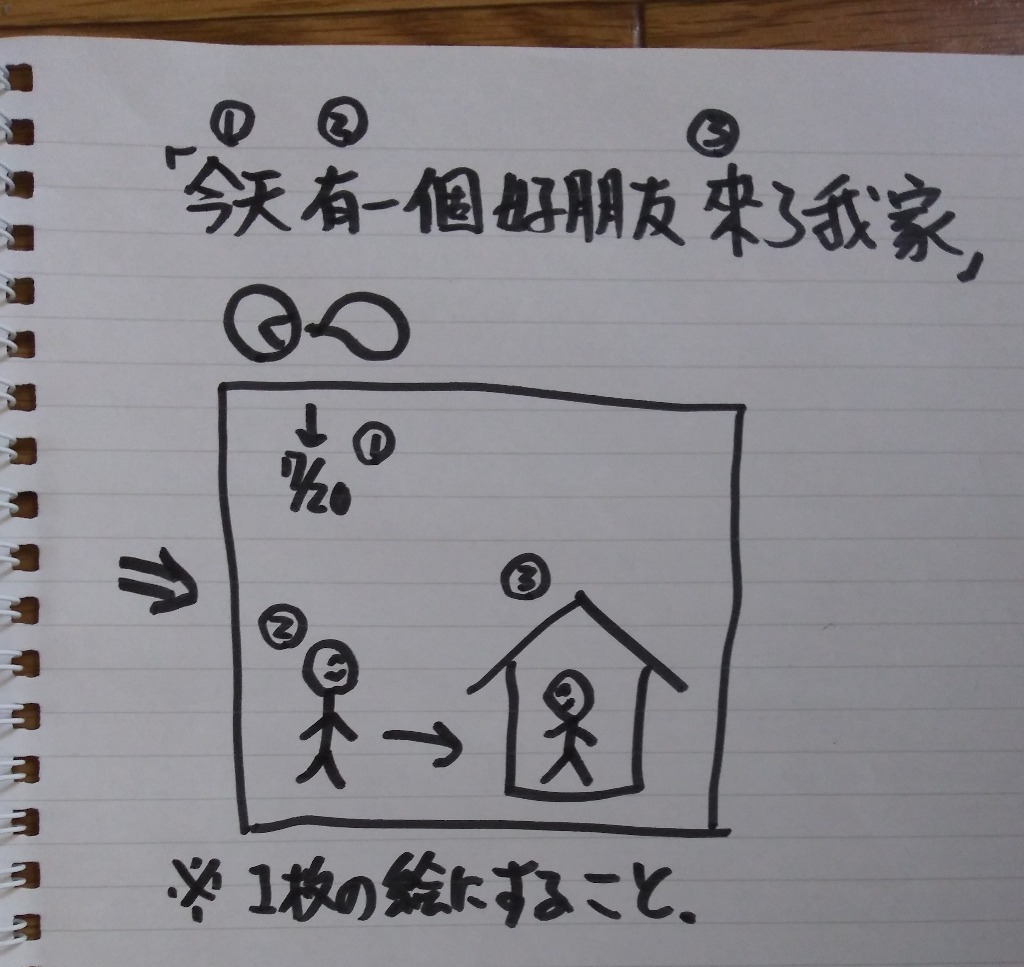 ① ② ③
「今天有一個好朋友來了我家」
↓
7/20 ①
③
②
※ 1枚の絵にすること.